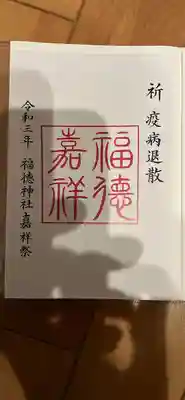 祈 疫病退散
福德
嘉祥
令和三年 福徳神社 嘉祥祭